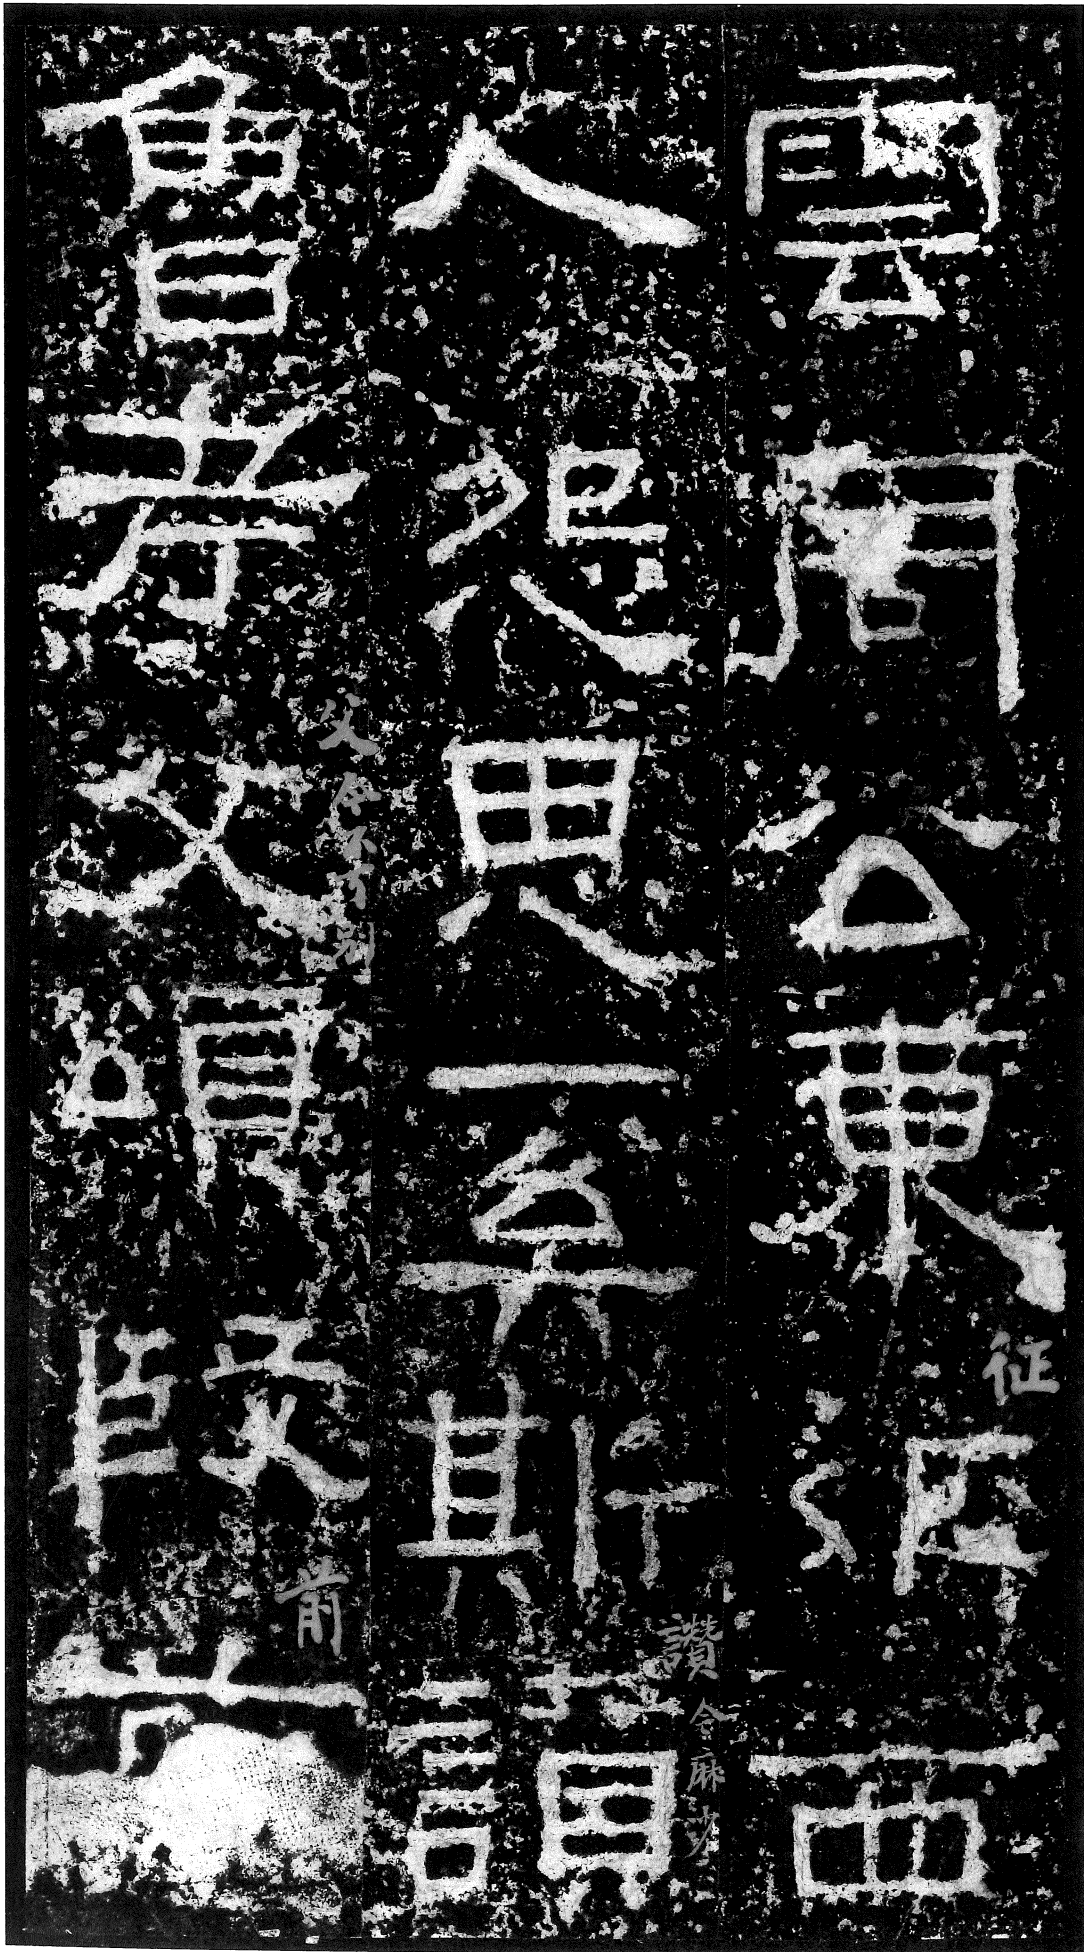 雲周公東征西
人怨思奚斯讚
魯考父頌殷前
征
讚
父今不可別
前